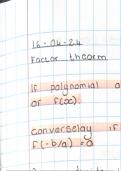 16-04-24
Factor theorm
If polynomial a
of f(x).
converselay if
f(-b/a) = 0